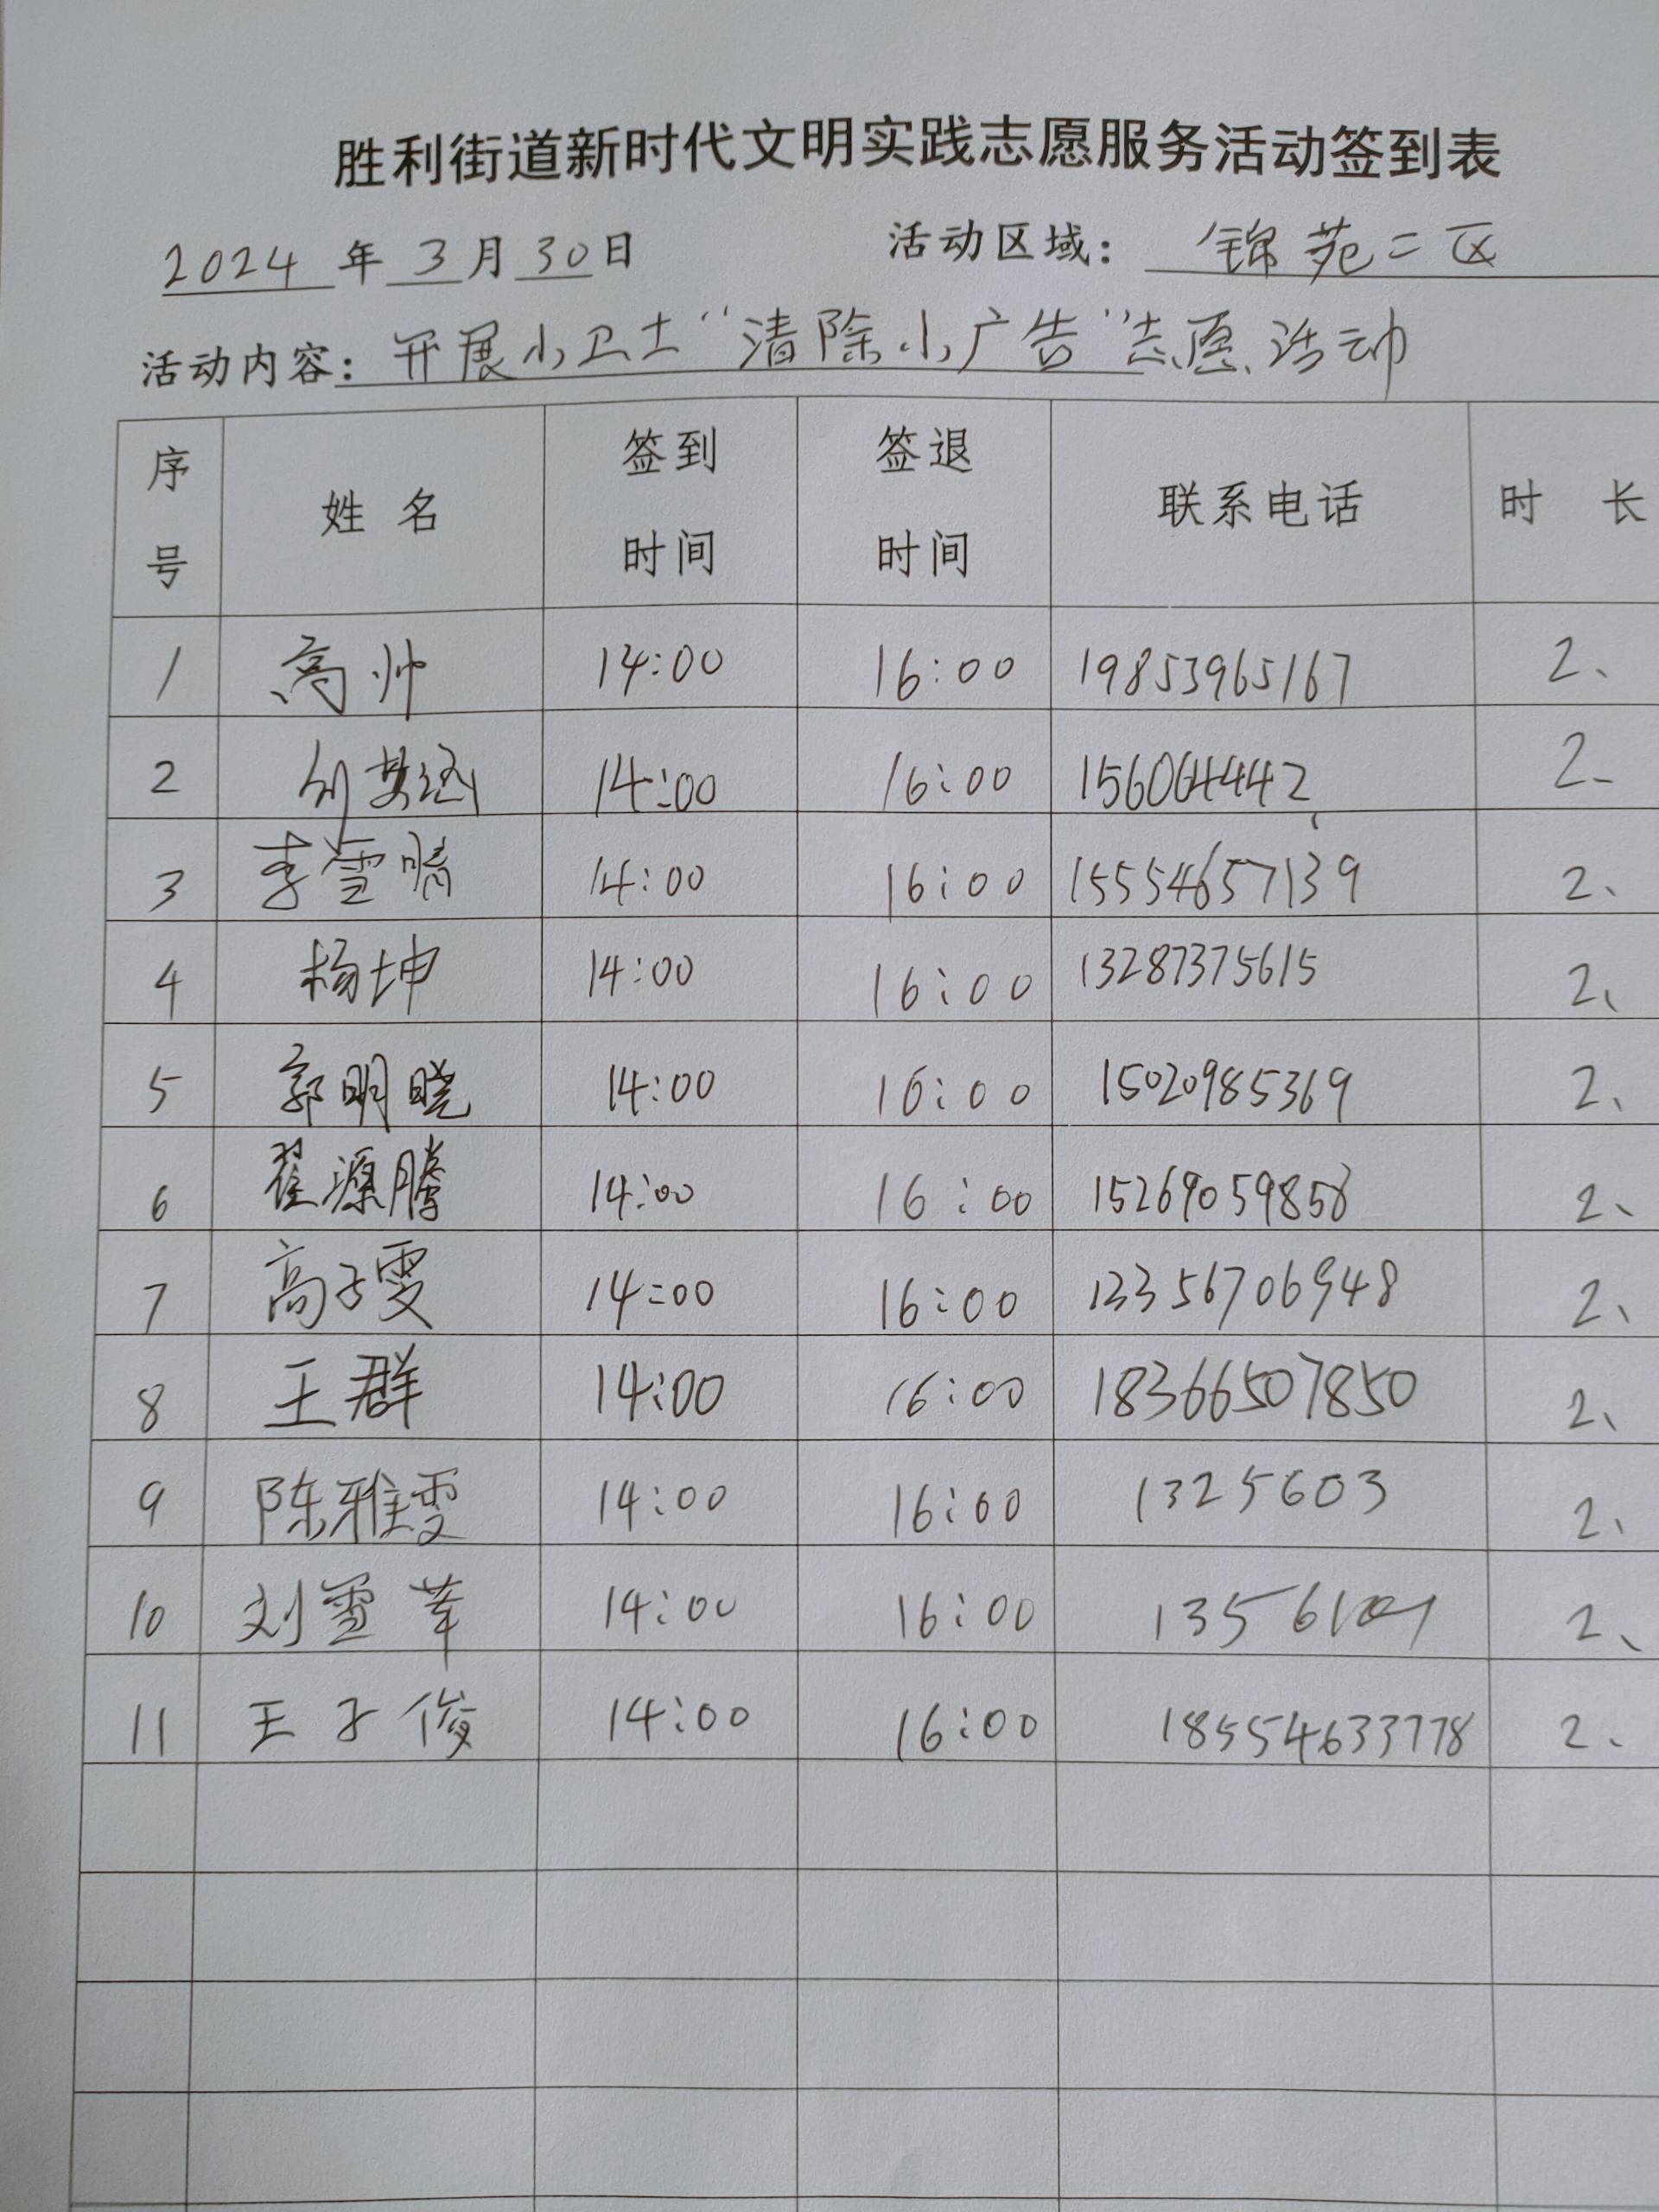 胜利街道新时代文明实践志愿服务活动签到表
2024年3月30日 活动区域：锦苑二区
活动内容：开展小卫士“清除小广告”志愿活动
序号 姓名 签到时间 签退时间 联系电话 时长
1 高帅 14:00 16:00 19853965167 2、
2 刘其涵 14:00 16:00 156064442 2-
3 李雪晴 14:00 16:00 15554657139 2、
4 杨坤 14:00 16:00 13287375615 2、
5 郭明晓 14:00 16:00 15020985369 2、
6 翟源腾 14:00 16:00 15269059858 2、
7 高子雯 14:00 16:00 13356706948 2、
8 王群 14:00 16:00 18366507850 2、
9 陈雅雯 14:00 16:00 1325603 2、
10 刘雪莘 14:00 16:00 2、
11 王子俊 14:00 16:00 18554633778 2、